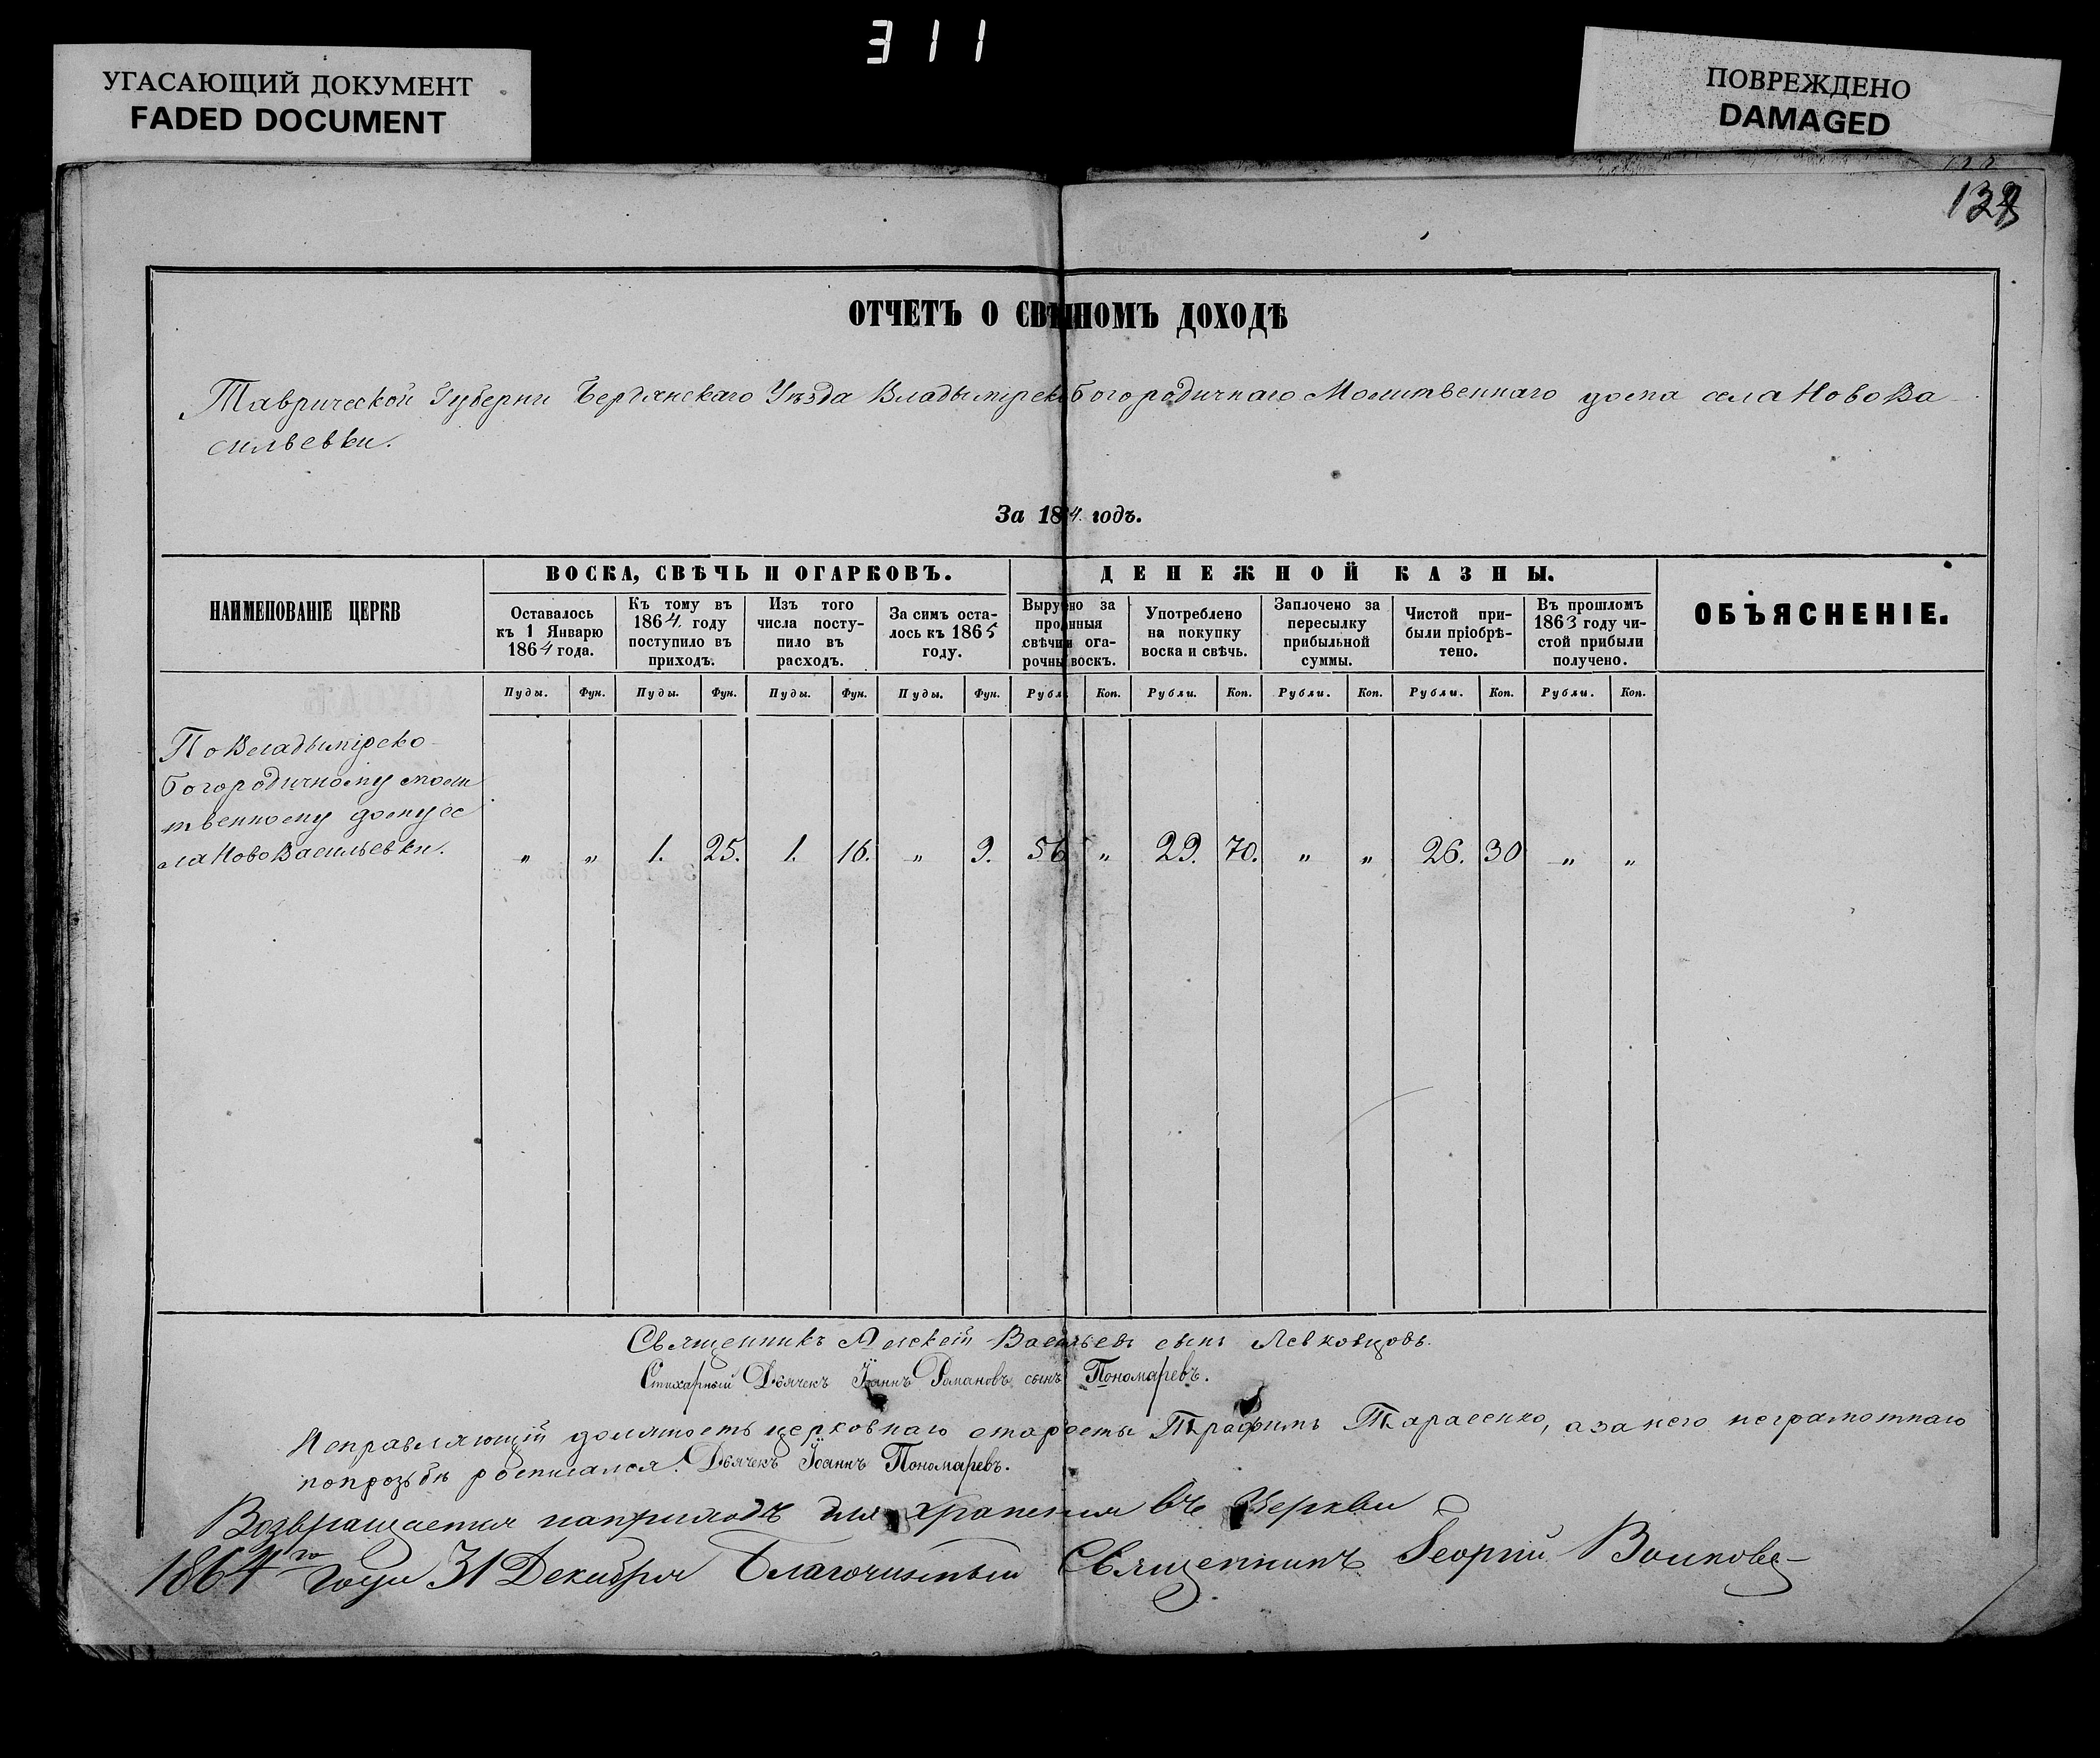 311
УГАСАЮЩИЙ ДОКУМЕНТ
FADED DOCUMENT
ПОВРЕЖДЕНО
DAMAGED
ОТЧЕТЪ О СВѢЧНОМЪ ДОХОДѢ
Таврической Губерни Бердянскаго Уѣзда Владымірско Богородичнаго Молитвеннаго дома села НовоВа
сильевки.
За 1864. годъ.
НАИМЕНОВАНІЕ ЦЕРКВ
ВОСКА, СВѢЧЬ И ОГАРКОВЪ.
ДЕНЕЖНОЙ КАЗНЫ.
ОБЪЯСНЕНІЕ.
Оставалось
къ 1 Январю
1864 года.
Къ тому въ
1864. году
поступило въ
приходъ.
Изъ того
числа посту-
пило въ
расходъ.
За симъ оста-
лось къ 1865
году.
Выручено за
проданныя
свѣчи и ога-
рочны воскъ.
Употреблено
на покупку
воска и свѣчь.
Заплочено за
пересылку
прибыльной
суммы.
Чистой при-
были пріобрѣ-
тено.
Въ прошломъ
1863 году чи-
стой прибыли
получено.
Пуды. Фун. Пуды. Фун. Пуды. Фун. Пуды. Фун. Рубли Коп. Рубли. Коп. Рубли. Коп. Рубли. Коп. Рубли. Коп.
По Владымірско-
Богородичному моли
твенному дому се
ла НовоВасильевки.
„ „ 1. 25. 1. 16. „ 9. 56 „ 29. 70. „ „ 26. 30 „ „
Священникъ Алексѣй Васильевъ сынъ Левковцовъ.
Стихарный Дьячекъ Іоаннъ Романовъ сынъ Пономаревъ.
Исправляющій должность церковнаго старосты Трафимъ Тарасенко, а за него неграмотнаго
по прозьбѣ росписался. Дьячекъ Іоаннъ Пономаревъ.
Возвращается на приходъ для храненія въ Церкви
1864го Года 31 Декабря Благочинный Священникъ Георгій Волковъ